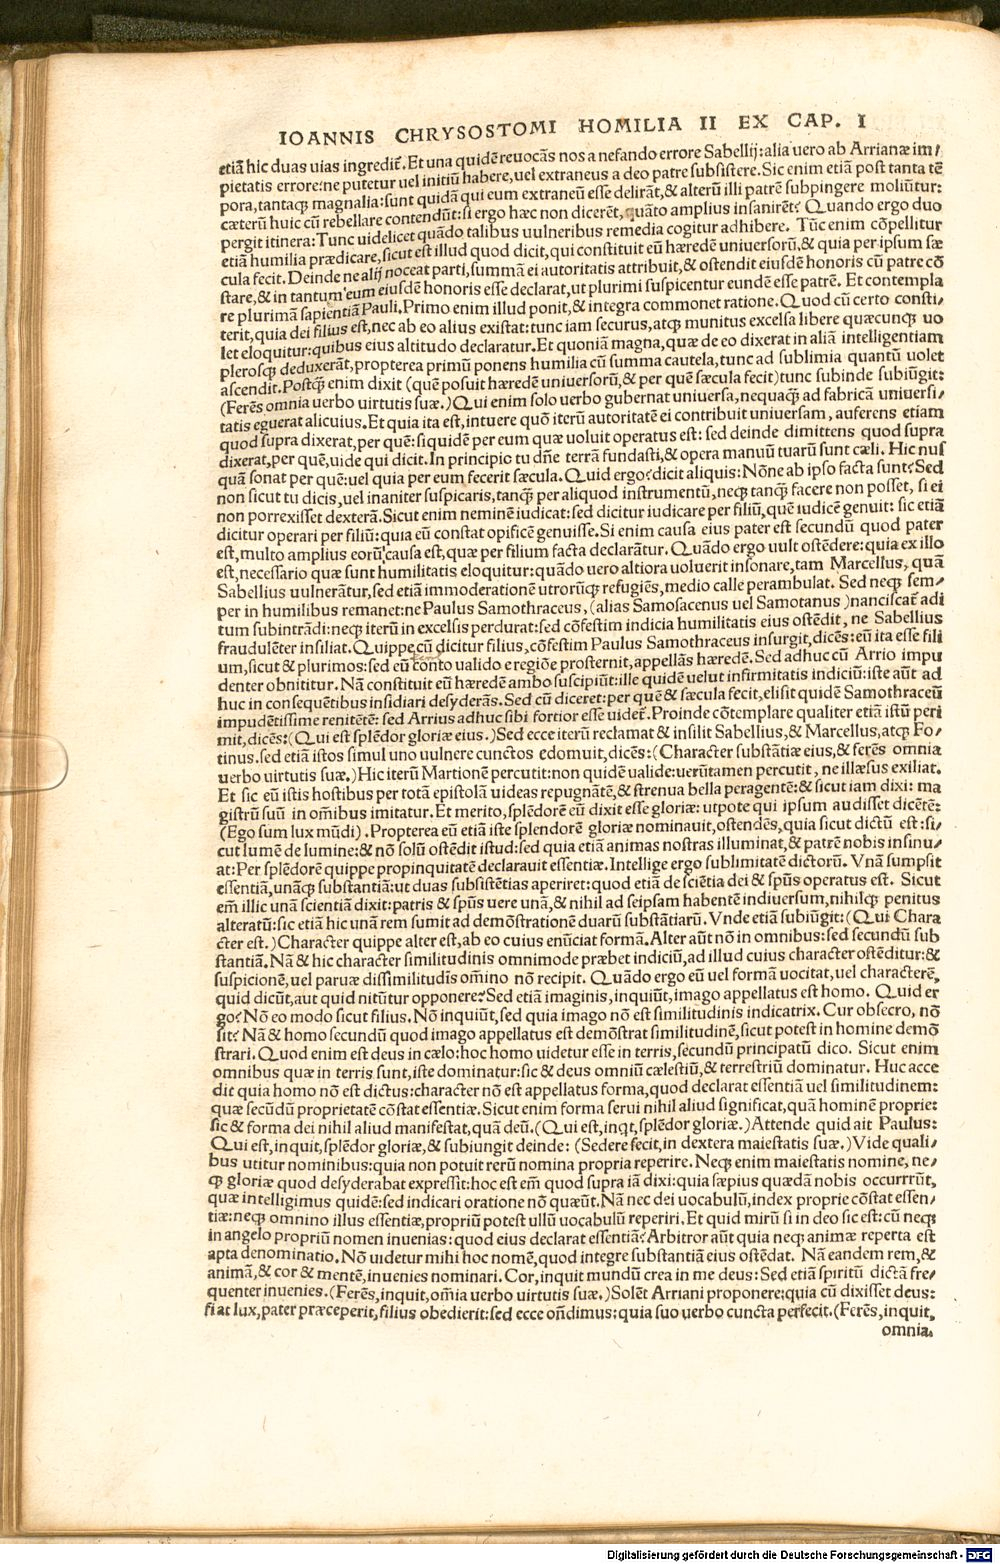 IOANNIS CHRYSOSTOMI HOMILIA II EX CAP. I
etiã hic duas uias ingredit̃. Et una quidẽ reuocãs nos a nefando errore Sabellij: alia uero ab Arrianæ im/
pietatis errore: ne putetur uel initiũ habere, uel extraneus a deo patre subsistere. Sic enim etiã post tanta tẽ
pora, tantaq; magnalia: sunt quidã qui eum extraneũ esse delirãt, & alterũ illi patrẽ subpingere moliũtur:
cæterũ huic cũ rebellare contendũt: si ergo hæc non dicerẽt, quãto amplius insanirẽt? Quando ergo duo
pergit itinera: Tunc uidelicet quãdo talibus uulneribus remedia cogitur adhibere. Tũc enim cõpellitur
etiã humilia prædicare, sicut est illud quod dicit, qui constituit eũ hæredẽ uniuersorũ, & quia per ipsum sæ
cula fecit. Deinde ne alij noceat parti, summã ei autoritatis attribuit, & ostendit eiusdẽ honoris cũ patre cõ
stare, & in tantum eum eiusdẽ honoris esse declarat, ut plurimi suspicentur eundẽ esse patrẽ. Et contempla
re plurimã sapientiã Pauli. Primo enim illud ponit, & integra commonet ratione. Quod cũ certo consti/
terit, quia dei filius est, nec ab eo alius existat: tunc iam securus, atq; munitus excelsa libere quæcunq; uo
let eloquitur: quibus eius altitudo declaratur. Et quoniã magna, quæ de eo dixerat in aliã intelligentiam
plerosq; deduxerãt, propterea primũ ponens humilia cũ summa cautela, tunc ad sublimia quantũ uolet
ascendit. Postq̃ enim dixit (quẽ posuit hæredẽ uniuersorũ, & per quẽ sæcula fecit) tunc subinde subiũgit:
(Ferẽs omnia uerbo uirtutis suæ.) Qui enim solo uerbo gubernat uniuersa, nequaq̃ ad fabricã uniuersi/
tatis eguerat alicuius. Et quia ita est, intuere quõ iterũ autoritatẽ ei contribuit uniuersam, auferens etiam
quod supra dixerat, per quẽ: siquidẽ per eum quæ uoluit operatus est: sed deinde dimittens quod supra
dixerat, per quẽ, uide qui dicit. In principio tu dñe terrã fundasti, & opera manuũ tuarũ sunt cæli. Hic nus
quã sonat per quẽ: uel quia per eum fecerit sæcula. Quid ergo? dicit aliquis: Nõne ab ipso facta sunt? Sed
non sicut tu dicis, uel inaniter suspicaris, tanq̃ per aliquod instrumentũ, neq; tanq̃ facere non posset, si ei
non porrexisset dexterã. Sicut enim neminẽ iudicat: sed dicitur iudicare per filiũ, quẽ iudicẽ genuit: sic etiã
dicitur operari per filiũ: quia eũ constat opificẽ genuisse. Si enim causa eius pater est secundũ quod pater
est, multo amplius eorũ causa est, quæ per filium facta declarãtur. Quãdo ergo uult ostẽdere: quia ex illo
est, necessario quæ sunt humilitatis eloquitur: quãdo uero altiora uoluerit insonare, tam Marcellus, quã
Sabellius uulnerãtur, sed etiã immoderationẽ utrorũq; refugiẽs, medio calle perambulat. Sed neq; sem/
per in humilibus remanet: ne Paulus Samothraceus, (alias Samosacenus uel Samotanus) nanciscat̃ adi
tum subintrãdi: neq; iterũ in excelsis perdurat: sed cõfestim indicia humilitatis eius ostẽdit, ne Sabellius
fraudulẽter insiliat. Quippe cũ dicitur filius, cõfestim Paulus Samothraceus insurgit, dicẽs: eũ ita esse fili
um, sicut & plurimos: sed eũ conto ualido e regiõe prosternit, appellãs hæredẽ. Sed adhuc cũ Arrio impu
denter obnititur. Nã constituit eũ hæredẽ ambo suscipiũt: ille quidẽ uelut infirmitatis indiciũ: iste aũt ad
huc in consequẽtibus insidiari desyderãs. Sed cũ diceret: per quẽ & sæcula fecit, elisit quidẽ Samothraceũ
impudẽtissime renitẽtẽ: sed Arrius adhuc sibi fortior esse uidet̃. Proinde cõtemplare qualiter etiã istũ peri
mit, dicẽs: (Qui est splẽdor gloriæ eius.) Sed ecce iterũ reclamat & insilit Sabellius, & Marcellus, atq; Fo/
tinus. sed etiã istos simul uno uulnere cunctos edomuit, dicẽs: (Character substãtiæ eius, & ferẽs omnia
uerbo uirtutis suæ.) Hic iterũ Martionẽ percutit: non quidẽ ualide: uerũtamen percutit, ne illæsus exiliat.
Et sic eũ istis hostibus per totã epistolã uideas repugnãtẽ, & strenua bella peragentẽ: & sicut iam dixi: ma
gistrũ suũ in om̃ibus imitatur. Et merito, splẽdorẽ eũ dixit esse gloriæ: utpote qui ipsum audisset dicẽtẽ:
(Ego sum lux mũdi). Propterea eũ etiã iste splendorẽ gloriæ nominauit, ostendẽs, quia sicut dictũ est: si/
cut lumẽ de lumine: & nõ solũ ostẽdit istud: sed quia etiã animas nostras illuminat, & patrẽ nobis insinu/
at: Per splẽdorẽ quippe propinquitatẽ declarauit essentiæ. Intellige ergo sublimitatẽ dictorũ. Vnã sumpsit
essentiã, unãq; substantiã: ut duas subsistẽtias aperiret: quod etiã de sciẽtia dei & sp̃us operatus est. Sicut
em̃ illic unã scientiã dixit: patris & sp̃us uere unã, & nihil ad seipsam habentẽ indiuersum, nihilq; penitus
alteratũ: sic etiã hic unã rem sumit ad demõstrationẽ duarũ substãtiarũ. Vnde etiã subiũgit: (Qui Chara
cter est.) Character quippe alter est, ab eo cuius enũciat formã. Alter aũt nõ in omnibus: sed secundũ sub
stantiã. Nã & hic character similitudinis omnimode præbet indiciũ, ad illud cuius character ostẽditur: &
suspicionẽ, uel paruæ dissimilitudis om̃ino nõ recipit. Quãdo ergo eũ uel formã uocitat, uel characterẽ,
quid dicũt, aut quid nitũtur opponere? Sed etiã imaginis, inquiũt, imago appellatus est homo. Quid er
go? Nõ eo modo sicut filius. Nõ inquiũt, sed quia imago nõ est similitudinis indicatrix. Cur obsecro, nõ
sit? Nã & homo secundũ quod imago appellatus est demõstrat similitudinẽ, sicut potest in homine demõ
strari. Quod enim est deus in cælo: hoc homo uidetur esse in terris, secundũ principatũ dico. Sicut enim
omnibus quæ in terris sunt, iste dominatur: sic & deus omniũ cælestiũ, & terrestriũ dominatur. Huc acce
dit quia homo nõ est dictus: character nõ est appellatus forma, quod declarat essentiã uel similitudinem:
quæ secũdũ proprietatẽ cõstat essentiæ. Sicut enim forma serui nihil aliud significat, quã hominẽ proprie:
sic & forma dei nihil aliud manifestat, quã deũ. (Qui est, inqt, splẽdor gloriæ.) Attende quid ait Paulus:
Qui est, inquit, splẽdor gloriæ, & subiungit deinde: (Sedere fecit, in dextera maiestatis suæ.) Vide quali/
bus utitur nominibus: quia non potuit rerũ nomina propria reperire. Neq; enim maiestatis nomine, ne/
q; gloriæ quod desyderabat expressit: hoc est em̃ quod supra iã dixi: quia sæpius quædã nobis occurrrũt,
quæ intelligimus quidẽ: sed indicari oratione nõ quæũt. Nã nec dei uocabulũ, index proprie cõstat essen/
tiæ: neq; omnino illus essentiæ, propriũ potest ullũ uocabulũ reperiri. Et quid mirũ si in deo sic est: cũ neq;
in angelo propriũ nomen inuenias: quod eius declarat essentiã? Arbitror aũt quia neq; animæ reperta est
apta denominatio. Nõ uidetur mihi hoc nomẽ, quod integre substantiã eius ostẽdat. Nã eandem rem, &
animã, & cor & mentẽ, inuenies nominari. Cor, inquit mundũ crea in me deus: Sed etiã spiritũ dictã fre/
quenter inuenies. (Ferẽs, inquit, om̃ia uerbo uirtutis suæ.) Solẽt Arriani proponere: quia cũ dixisset deus:
fiat lux, pater præceperit, filius obedierit: sed ecce oñdimus: quia suo uerbo cuncta perfecit. (Ferẽs, inquit,
omnia.
Digitalisierung gefördert durch die Deutsche Forschungsgemeinschaft - DFG